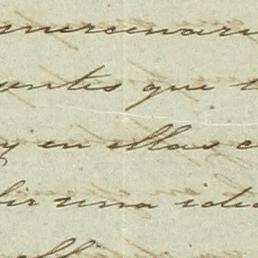 mercenari
entes que t
y en ellas c
bir una idea